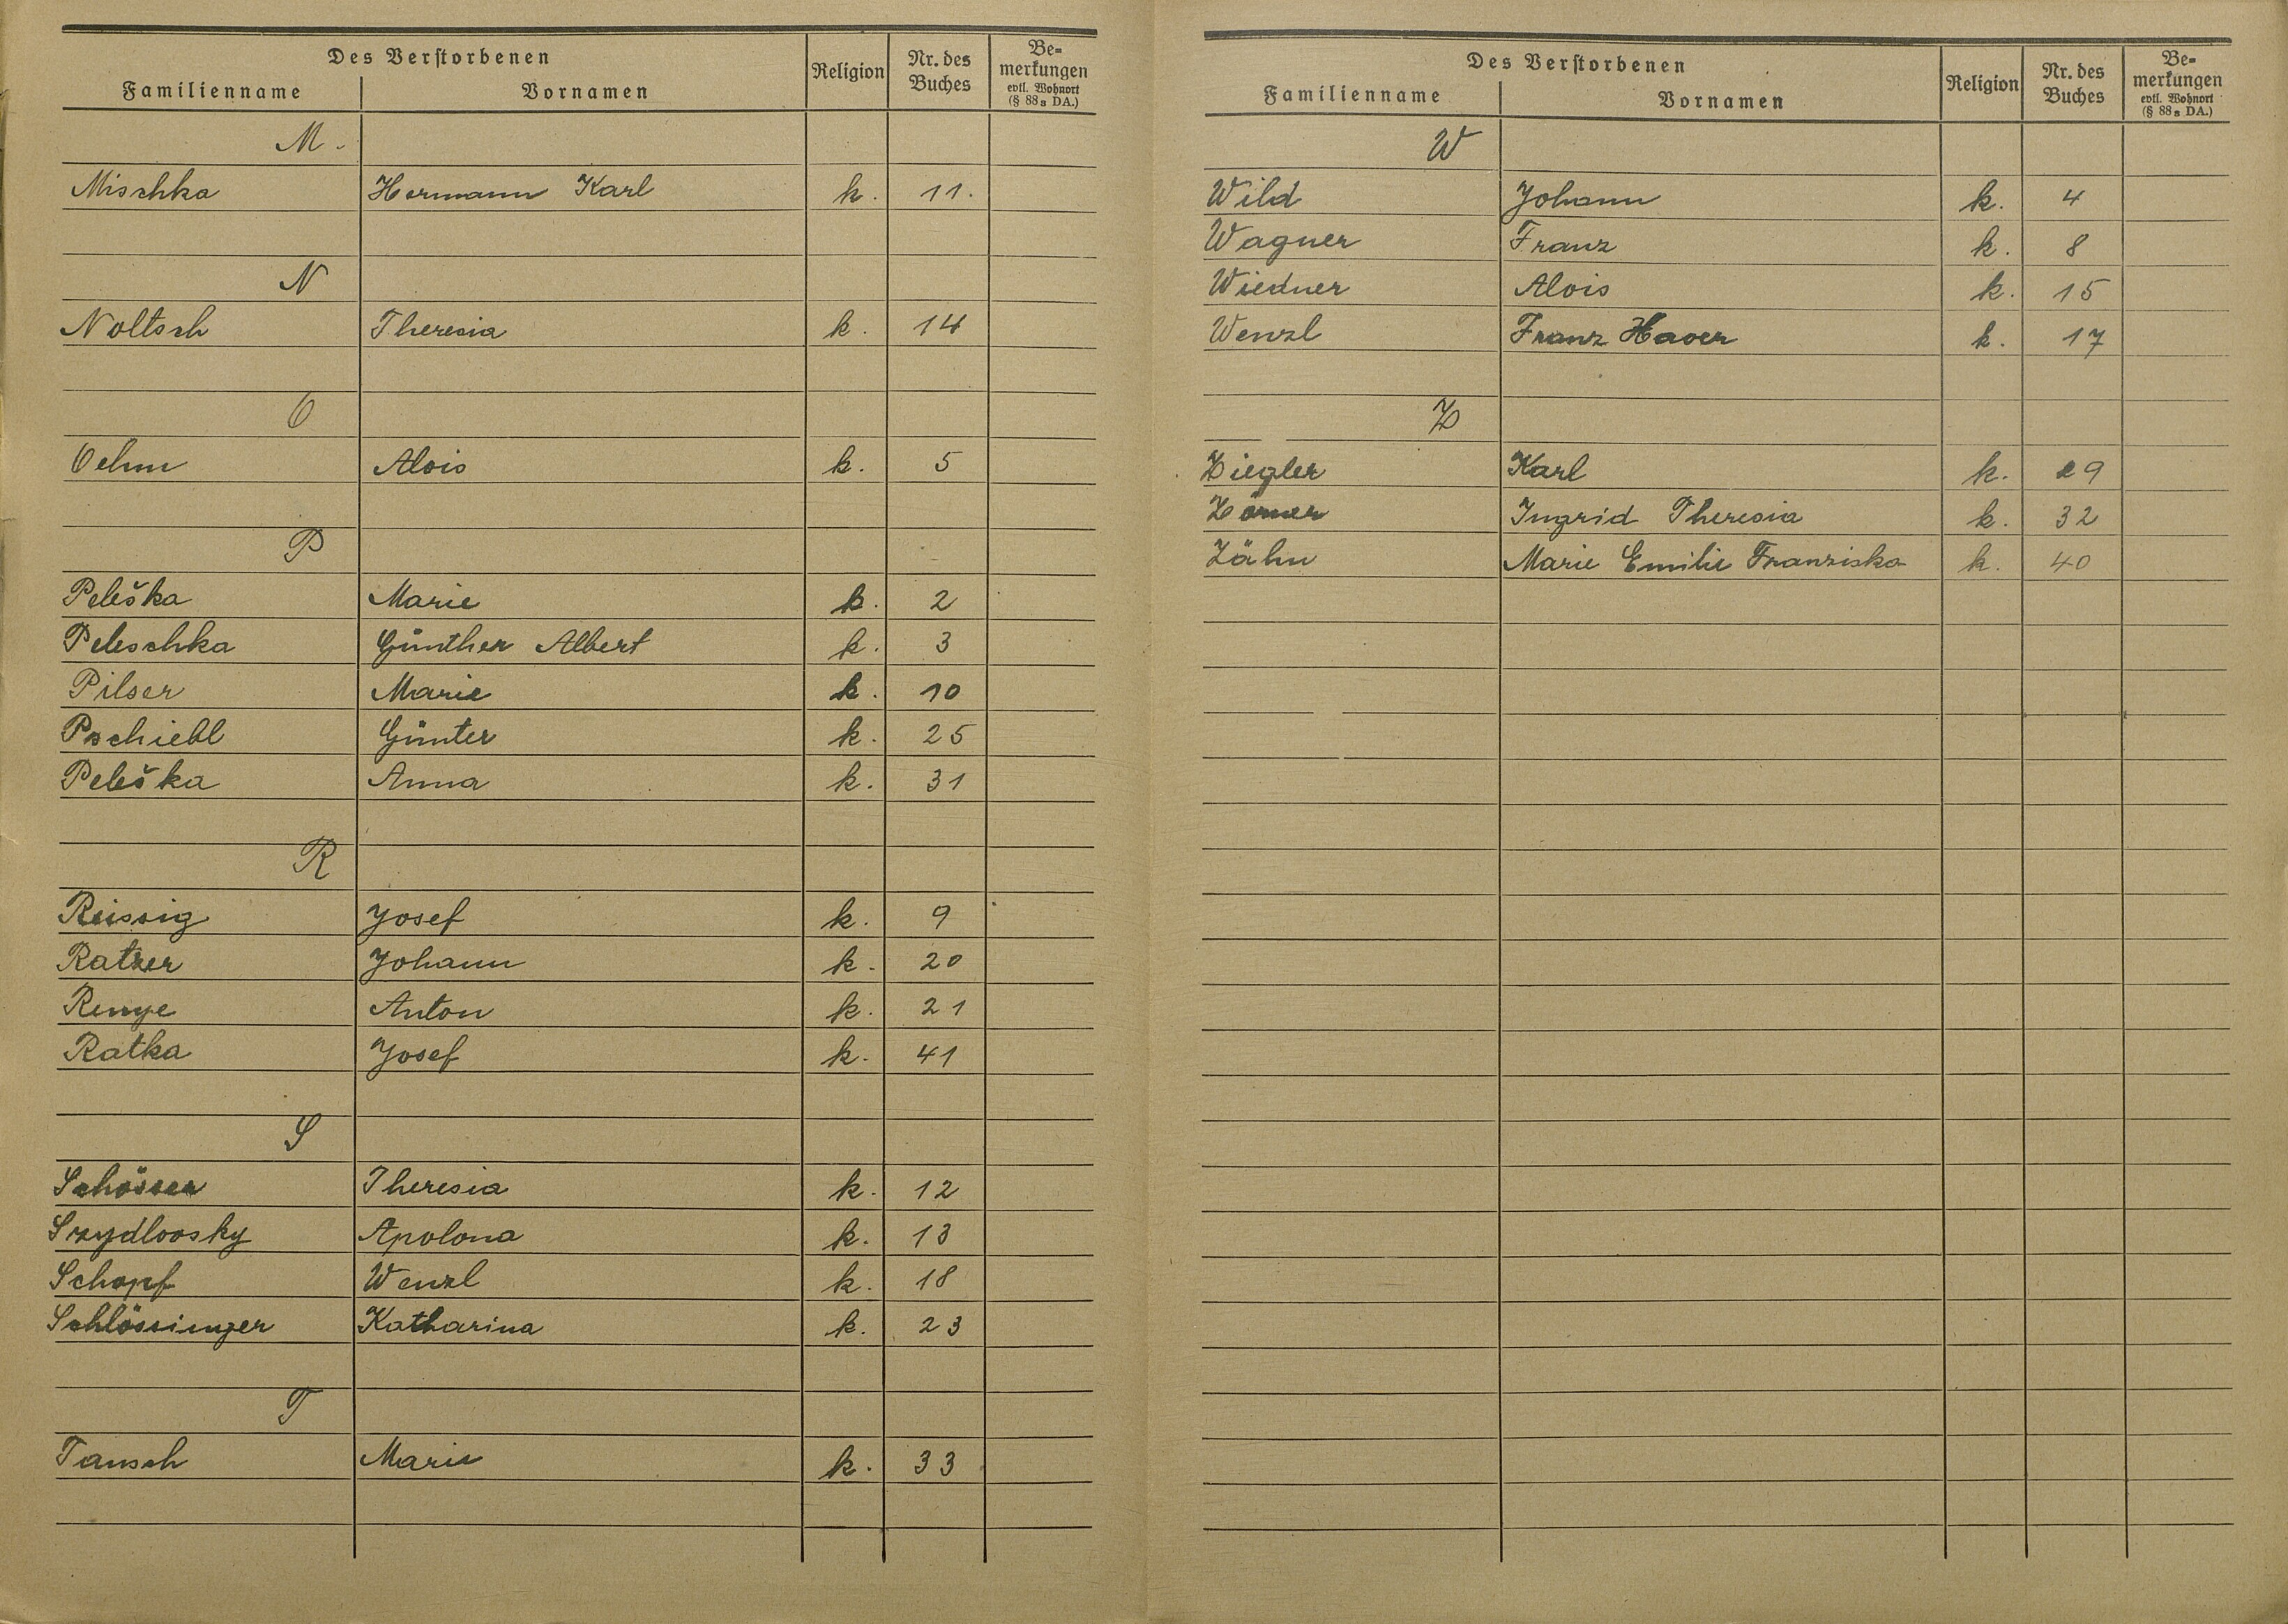 Des Verstorbenen
Familienname Vornamen Religion Nr. des Buches Be-merkungen evtl. Wohnort (§ 88a DA.)
M.
Mischka Hermann Karl k. 11.
N
Noltsch Theresia k. 14
O
Oehm Alois k. 5
P
Peleška Marie k. 2
Peleschka Günther Albert k. 3
Pilser Marie k. 10
Pschiebl Günter k. 25
Peleška Anna k. 31
R
Reissig Josef k. 9
Ratzer Johann k. 20
Renye Anton k. 21
Ratka Josef k. 41
S
Schösser Theresia k. 12
Szydlovsky Apolona k. 13
Schopf Wenzl k. 18
Schlössinger Katharina k. 23
T
Tausch Marie k. 33
Des Verstorbenen
Familienname Vornamen Religion Nr. des Buches Be-merkungen evtl. Wohnort (§ 88a DA.)
W
Wild Johann k. 4
Wagner Franz k. 8
Wiedner Alois k. 15
Wenzl Franz Xaver k. 17
Z
Ziegler Karl k. 29
Ingrid Theresia k. 32
Zähn Marie Emilie Franziska k. 40